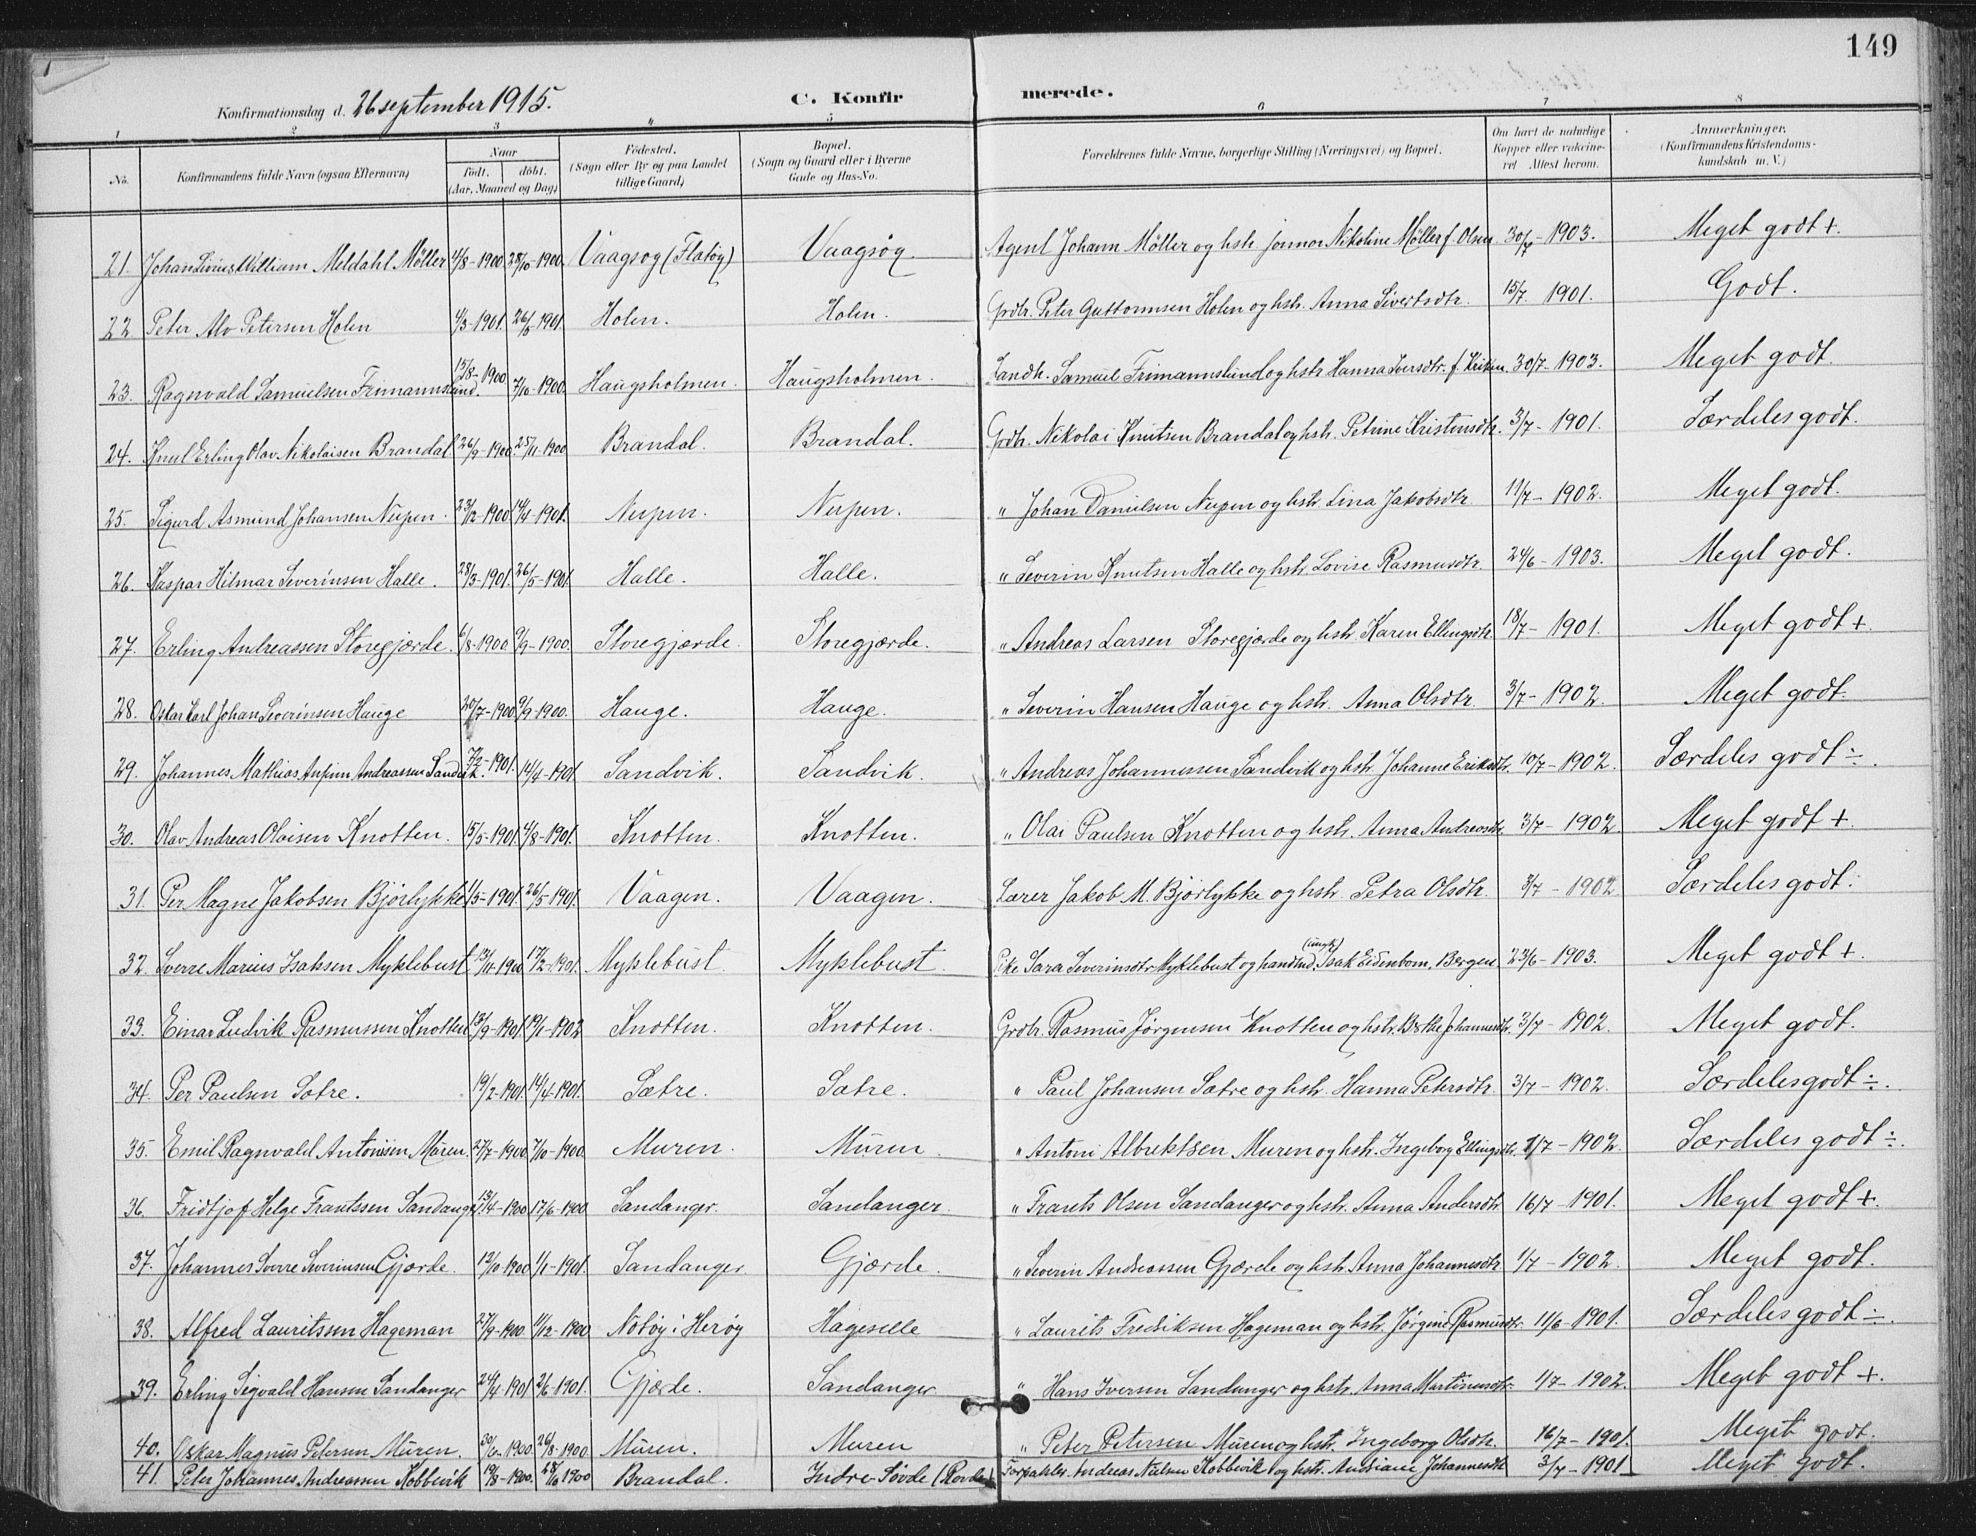 149
Konfirmationsdag d. 26 september 1915. C. Konfirmerede.
1 2 3 4 5 6 7 8
No. Konfirmandens fulde Navn (ogsaa Efternavn) Naar født, døbt. (Aar, Maaned og Dag) Fødested. (Sogn eller By og paa Landet tillige Gaard) Bopæl. (Sogn og Gaard eller i Byerne Gade og Hus-No. Forældrenes fulde Navne, borgerlige Stilling (Næringsvei) og Bopæl. Om havt de naturlige Kopper eller vaccineret Attest herom. Anmærkninger. (Konfirmandens Kristendomskundskab m. V.)
21. Johan William Meldahl Møller 4/8-1900 28/10-1900. Vaagsøy (Flatøy) Vaagsøy. Agent Johann Møller og hstr. Nikoline Møller f. Olsen 1903. Meget godt +.
22. Peter Alv Petersen Holen 4/3-1901. 26/5-1901. Holen. Holen. Grdbr. Peter Guttormsen Holen og hstr. Anna Sivertsdtr. 15/7 1901. Godt.
23. Ragnvald Samuelsen Frimannslund. 15/8-1900 7/10-1900. Haugsholmen. Haugsholmen. Landh. Samuel Frimannslund og hstr. Hanna Iversdtr. 30/7-1903. Meget godt.
24. Knut Erling Olav Nikolaisen Brandal 26/9-1900. 25/11-1900 Brandal. Brandal. Grdbr. Nikolai Knutsen Brandal og hstr. Petrine Kristensdtr. 3/7-1901. Særdeles godt.
25. Sigurd Asmund Johansen Nupen. 23/12-1900 14/4-1901. Nupen. Nupen. " Johan Danielsen Nupen og hstr. Lina Jakobsdtr. 11/7-1902. Meget godt.
26. Kaspar Hilmar Severinsen Halle. 28/3-1901. 26/5-1901. Halle. Halle. " Severin Knutsen Halle og hstr. Lovise Rasmusdtr. 24/6-1903. Meget godt.
27. Erling Andreassen Storegjærde. 6/8-1900 9/9-1900. Storegjærde. Storegjærde. " Andreas Larsen Storegjærde og hstr. Karen Ellingsdtr. 18/7-1901. Meget godt +.
28. Oskar Carl Johan Severinsen Hauge 20/7-1900 9/9-1900. Hauge. Hauge. " Severin Hansen Hauge og hstr. Anna Olsdtr. 3/7-1902. Meget godt.
29. Johannes Mathias Andreassen Sandvik. 7/2-1901. 14/4-1901 Sandvik. Sandvik. " Andreas Johannessen Sandvik og hstr. Johanne Eriksdtr. 10/7-1902. Særdeles godt ÷.
30. Olav Andreas Olaisen Knotten. 15/5-1901 4/8-1901. Knotten. Knotten. " Olai Paulsen Knotten og hstr. Anna Andreasdtr. 3/7-1902. Meget godt +.
31. Per Magne Jakobsen Bjørlykke 1/5-1901. 26/5-1901. Vaagen. Vaagen. Lærer Jakob M. Bjørlykke og hstr. Petra Olsdtr. 3/7-1902 Særdeles godt.
32. Sverre Marius Isaksen Myklebust. 13/11-1900 17/2-1901. Myklebust. Myklebust. Pike Sara Severinsdtr. Myklebust og handlnd. (ungk.) Isak Eidenbom, Bergen 23/6-1903. Meget godt +.
33. Einar Ludvik Rasmussen Knotten 13/9-1901. 19/1-1902 Knotten. Knotten. Grdbr. Rasmus Jørgensen Knotten og hstr. Berthe Johannesdtr. 3/7-1902. Meget godt.
34. Per Paulsen Sætre. 19/2-1901. 14/4-1901. Sætre. Sætre. " Paul Johansen Sætre og hstr. Hanna Petersdtr. 3/7-1902. Særdeles godt ÷.
35. Emil Ragnvald Antonisen Muren 27/7-1900 7/10-1900. Muren. Muren " Antoni Albrektsen Muren og hstr. Ingeborg Ellingsdtr. 1/7-1902. Særdeles godt ÷.
36. Fridtjof Helge Frantssen Sandanger 13/4-1900 17/6-1900 Sandanger. Sandanger. " Frants Olsen Sandanger og hstr. Anna Andersdtr. 16/7-1901. Meget godt +.
37. Johannes Sverre Severinsen Gjærde. 12/10-1900 1/1-1901. Sandanger Gjærde. " Severin Andreassen Gjærde og hstr. Anna Johannesdtr. 1/7-1902. Meget godt.
38. Alfred Lauritssen Hageman 27/9-1900 11/12-1900 Nøtøy i Herøy Hageselle " Laurits Fredriksen Hageman og hstr. Jørgine Rasmusdtr. 11/6-1901. Særdeles godt ÷.
39. Erling Sigvald Hansen Sandanger 24/4-1901 2/6-1901. Gjærde. Sandanger " Hans Iversen Sandanger og hstr. Anna Martinusdtr. 1/7-1902. Meget godt +.
40. Oskar Magnus Petersen Muren. 1900 26/8-1900. Muren. Muren " Peter Petersen Muren og hstr. Ingeborg Olsdtr. 16/7-1901. Meget godt.
41. Peter Johannes Andreassen Kobbevik 19/8-1900. 28/10 1900 Brandal. Indre Søvde (Rovde) Forpakter Andreas Nielsen Kobbevik og hstr. Andriane Johannesdtr. 3/7-1901 Meget godt.